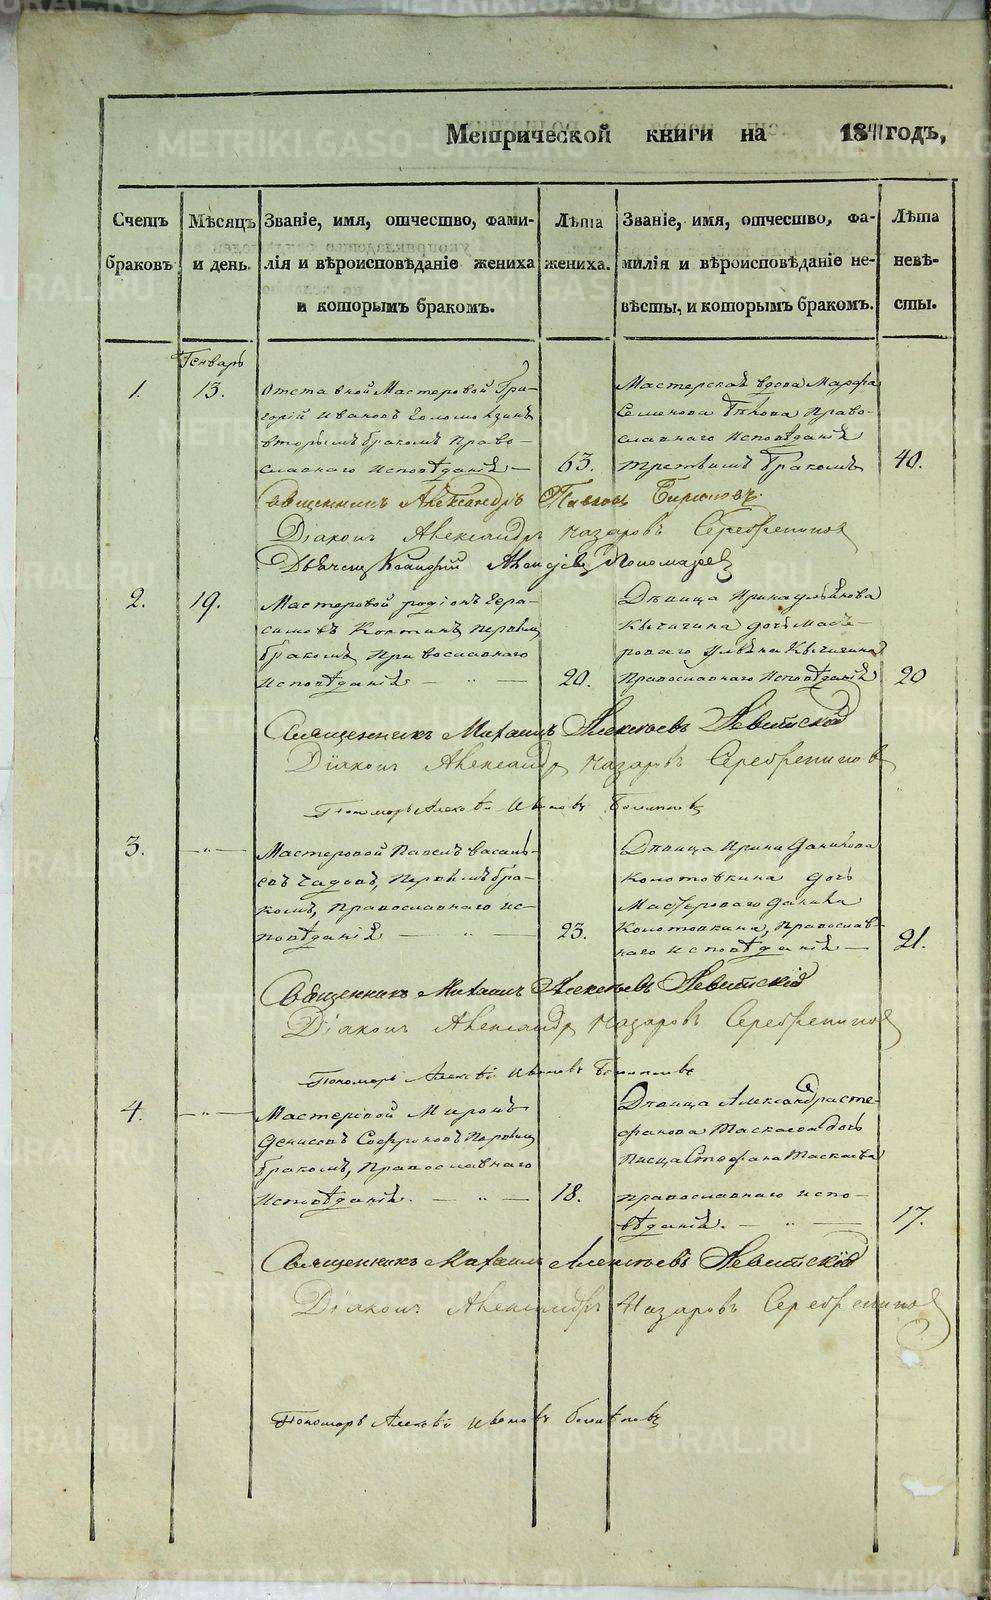 Метрической книги на 1841 годъ,
Счетъ браковъ.
Мѣсяцъ и день.
Званіе, имя, отчество, фами-
лія и вѣроисповѣданіе жениха
и которымъ бракомъ.
Лѣта
жениха.
Званіе, имя, отчество, фа-
милія и вѣроисповѣданіе не-
вѣсты, и которымъ бракомъ.
Лѣта
невѣ-
сты.
Генварь
1.
13.
Отставной Мастеровой Гри-
горій Ивановъ
вторымъ бракомъ Право-
славнаго Исповѣданія —
63.
Мастерская вдова Марфа
Семенова Право-
славнаго Исповѣданія
третьимъ бракомъ
40.
Священникъ Александръ Павловъ Бирюковъ.
Діаконъ Александръ Назаровъ Серебрениковъ
Дьячекъ Пономаревъ
2.
19.
Мастеровой Родіонъ Гера-
симовъ Коптинъ первымъ
бракомъ Православнаго
Исповѣданія — „ —
20.
Дѣвица Ирина Ульянова
Кычигина дочь Масте-
роваго Ульяна Кычигина
Православнаго Исповѣданія
20
Священникъ Михаилъ Алексѣевъ Левитскій
Діаконъ Александръ Назаровъ Серебрениковъ
Пономарь Алексѣй Ивановъ
3.
— „ —
Мастеровой Павелъ Василь-
евъ Чадовъ, Первымъ бра-
комъ, Православнаго ис-
повѣданія — „ —
23.
Дѣвица Ирина Данилова
Колотовкина дочь
Мастероваго Данила
Колотовкина, Православ-
наго Исповѣданія —
21.
Священникъ Михаилъ Алексѣевъ Левитскій
Діаконъ Александръ Назаровъ Серебрениковъ
Пономарь Алексѣй Ивановъ
4.
— „ —
Мастеровой Миронъ
Денисовъ Софроновъ Первымъ
бракомъ, Православнаго
Исповѣданія. — „ —
18.
Дѣвица Александра Сте-
фанова Таскаева дочь
Писца Стефана Таскаева
Православнаго испо-
вѣданія. — „ —
17.
Священникъ Михаилъ Алексѣевъ Левитскій
Діаконъ Александръ Назаровъ Серебрениковъ
Пономарь Алексѣй Ивановъ
METRIKI.GASO-URAL.RU